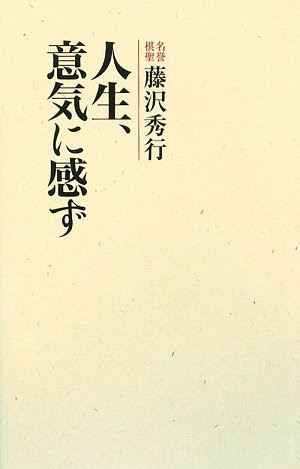 名誉
棋聖
藤沢秀行
人生、
意気に感ず